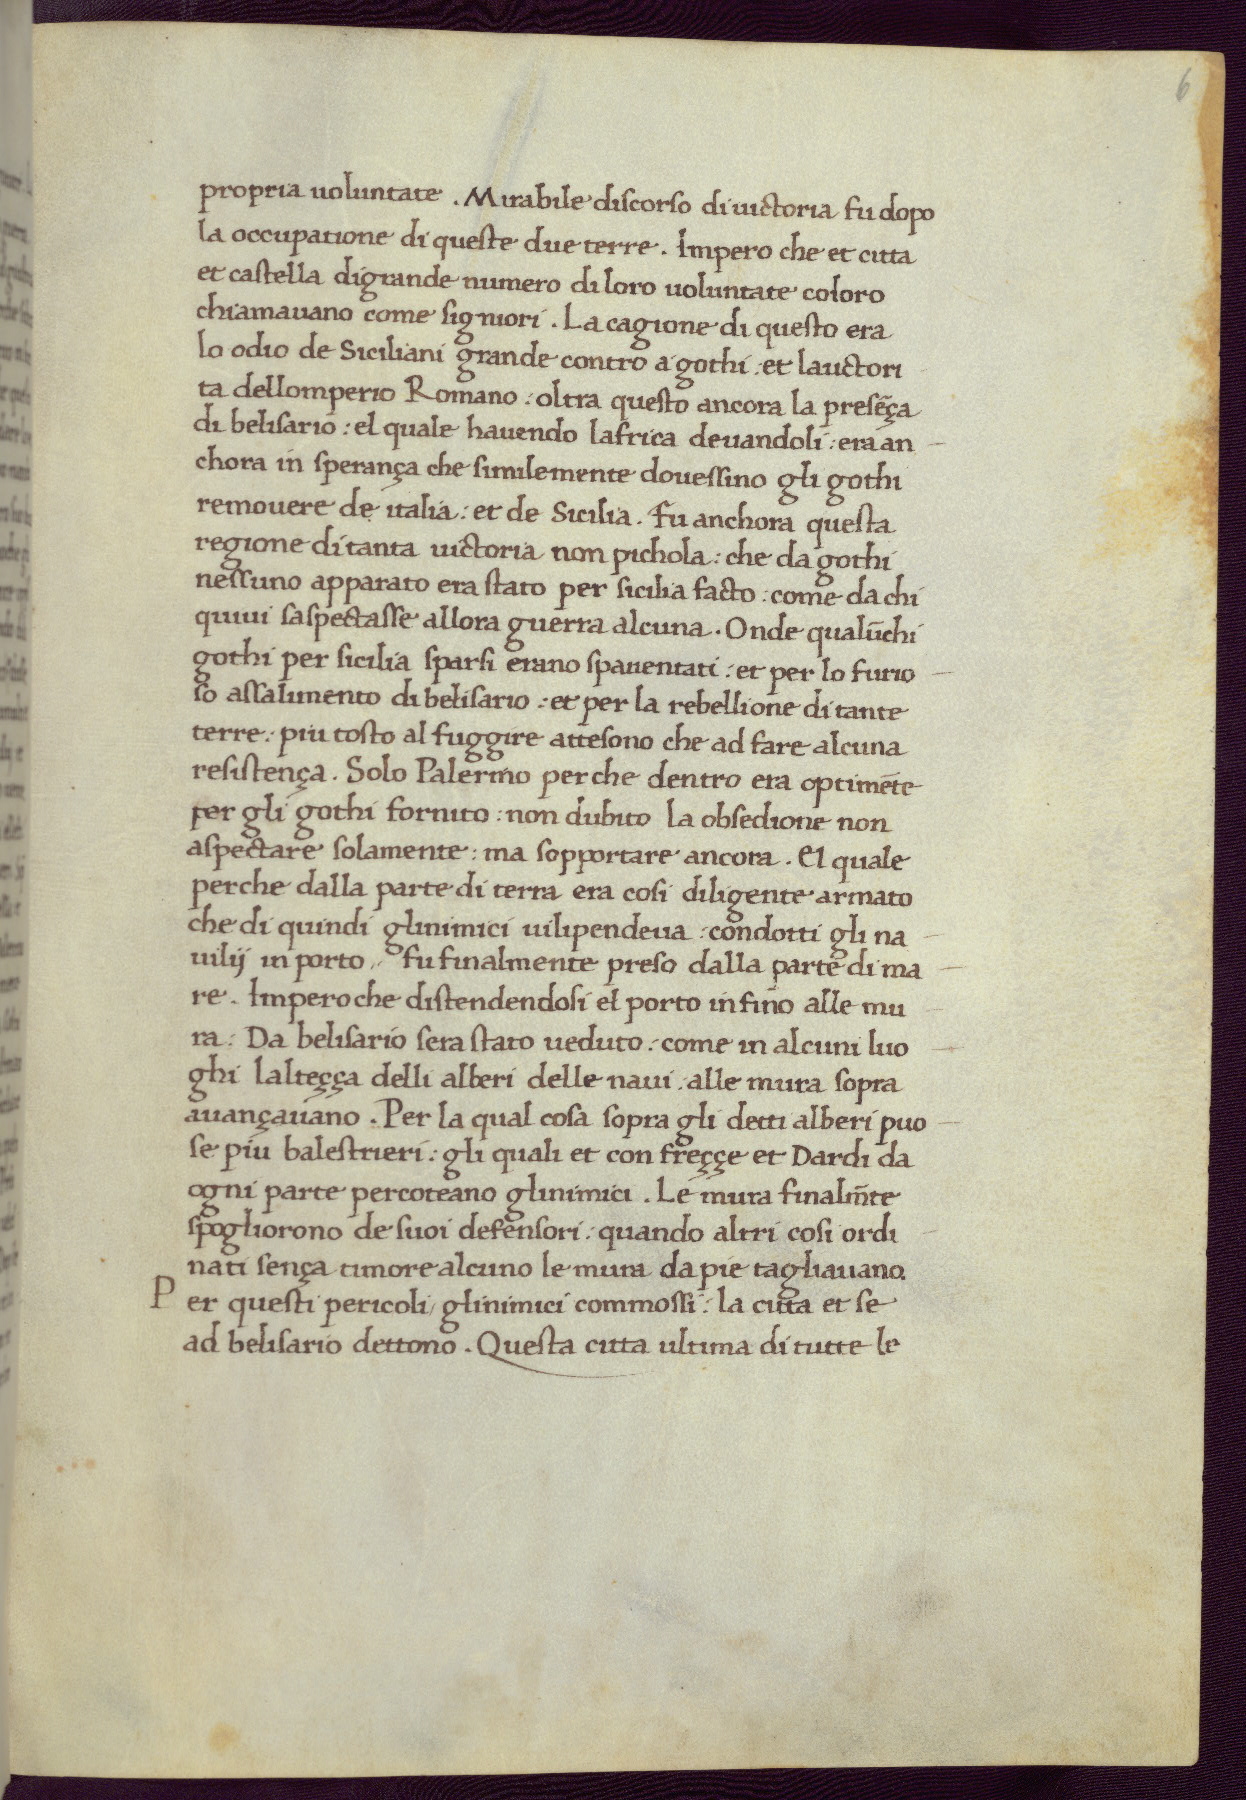 6
propria uoluntate . Mirabile discorso di uictoria fu dopo
la occupatione di queste due terre . Impero che et citta
et castella di grande numero di loro uoluntate coloro
chiamauano come signiori . La cagione di questo era
lo odio de Siciliani grande contro a gothi : et lauctori
ta dellomperio Romano : oltra questo ancora la presẽça
di belisario : el quale hauendo lafrica deuandoli : era an
chora in sperança che similemente douessino gli gothi
remouere de italia : et de Sicilia . Fu anchora questa
regione di tanta uictoria non pichola : che da gothi
nessuno apparato era stato per sicilia facto : come da chi
quiui saspectasse allora guerra alcuna . Onde qualũchi
gothi per sicilia sparsi erano spauentati : et per lo furio
so assalimento di belisario : et per la rebellione di tante
terre : piu tosto al fuggire attesono che ad fare alcuna
resistença . Solo Palermo perche dentro era optimẽte
per gli gothi fornito : non dubito la obsedione non
aspectare solamente : ma sopportare ancora . El quale
perche dalla parte di terra era cosi diligente armato
che di quindi glinimici uilipendeua : condotti gli na
uilij in porto , fu finalmente preso dalla parte di ma
re . Impero che distendendosi el porto infino alle mu
ra : Da belisario sera stato ueduto : come in alcuni luo
ghi lalteçça delli alberi delle naui : alle mura sopra
auançauano . Per la qual cosa sopra gli detti alberi puo
se piu balestrieri : gli quali et con freççe et Dardi da
ogni parte percoteano glinimici . Le mura finalm̃te
spogliorono de suoi defensori : quando altri cosi ordi
nati sença timore alcuno le mura da pie tagliauano.
Per questi pericoli / glinimici commossi : la citta et se
ad belisario dettono . Questa citta ultima di tutte le